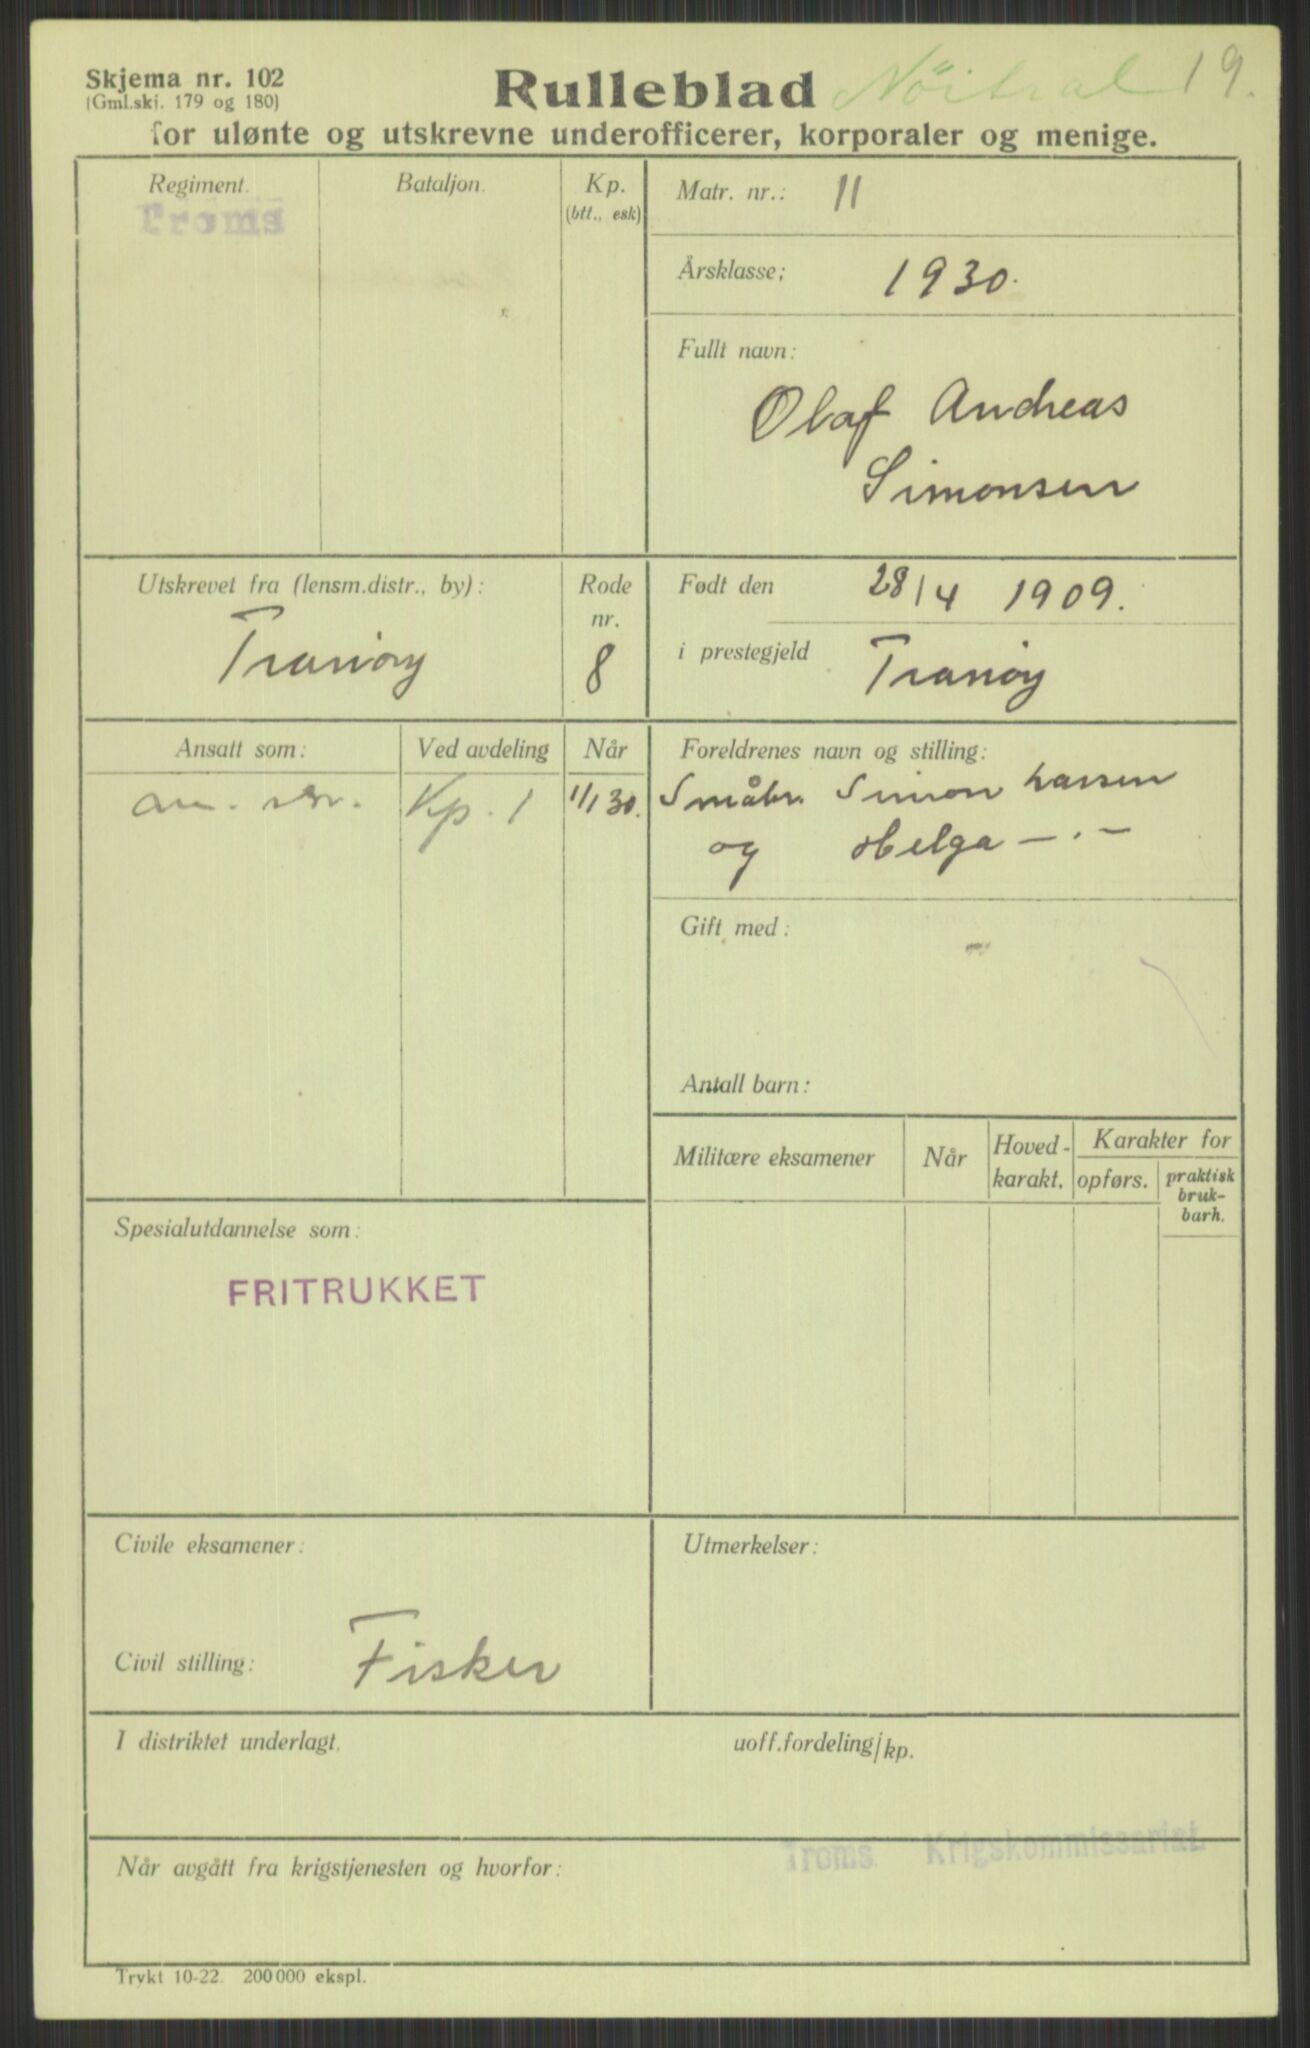 Skjema nr. 102
(Gml.skj. 179 og 180)
Rulleblad Nöitral 19.
for ulønte og utskrevne underofficerer, korporaler og menige.
Regiment. Bataljon. Kp. (btt., esk)
Troms
Matr. nr.: 11
Årsklasse: 1930.
Fullt navn:
Olaf Andreas
Simonsen
Utskrevet fra (lensm.distr., by): Rode nr.
Tranöy 8
Født den 28/4 1909.
i prestegjeld Tranöy
Ansatt som: Ved avdeling Når
Kp. 1 1/1 30.
Foreldrenes navn og stilling:
Småbr. Simon Larsen
og Helga — . —
Gift med:
Antall barn:
Militære eksamener Når Hoved-karakt. Karakter for
opførs. praktisk bruk-barh.
Spesialutdannelse som:
FRITRUKKET
Civile eksamener: Utmerkelser:
Civil stilling: Fisker
I distriktet underlagt. uoff.fordeling/kp.
Troms Krigskommissariat
Når avgått fra krigstjenesten og hvorfor:
Trykt 10-22. 200 000 ekspl.